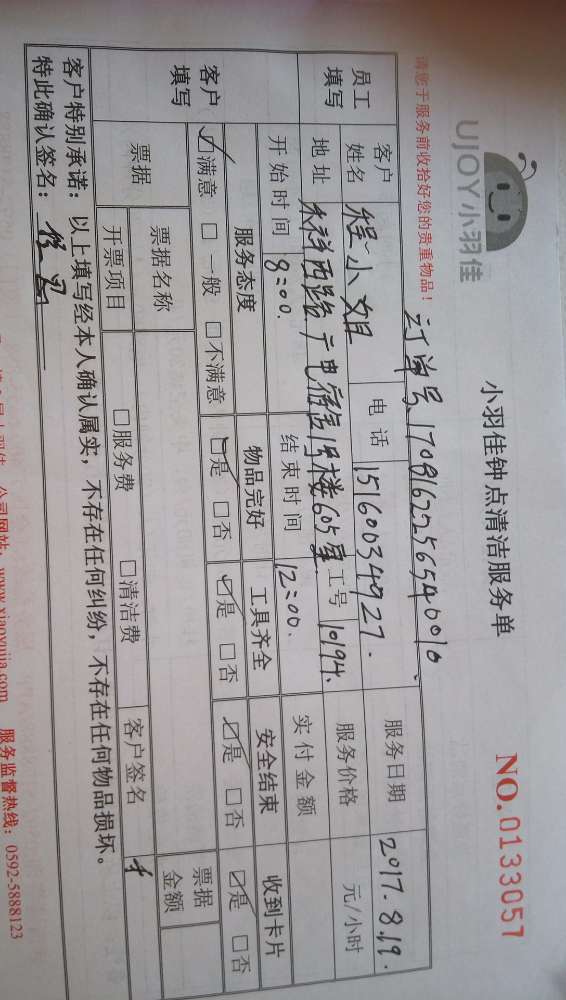 UJOY小羽佳
小羽佳钟点清洁服务单
NO.0133057
请您于服务前收拾好您的贵重物品！
订单号
员工填写 客户姓名 程小姐 电话 15160034927. 服务日期 2017.8.19.
地址 禾祥西路广电宿舍1号楼605室 工号 10194. 服务价格 元/小时
开始时间 8:00. 结束时间 12:00. 实付金额
客户填写 服务态度 物品完好 工具齐全 安全结束 收到卡片
☑满意 □一般 □不满意 ☑是 □否 ☑是 □否 ☑是 □否 ☑是 □否
票据 票据名称 票据金额
开票项目 □服务费 □清洁费 客户签名
客户特别承诺：以上填写经本人确认属实，不存在任何纠纷，不存在任何物品损坏。
特此确认签名：
公司网站：www.xiaoyujia.com 服务监督热线：0592-5888123